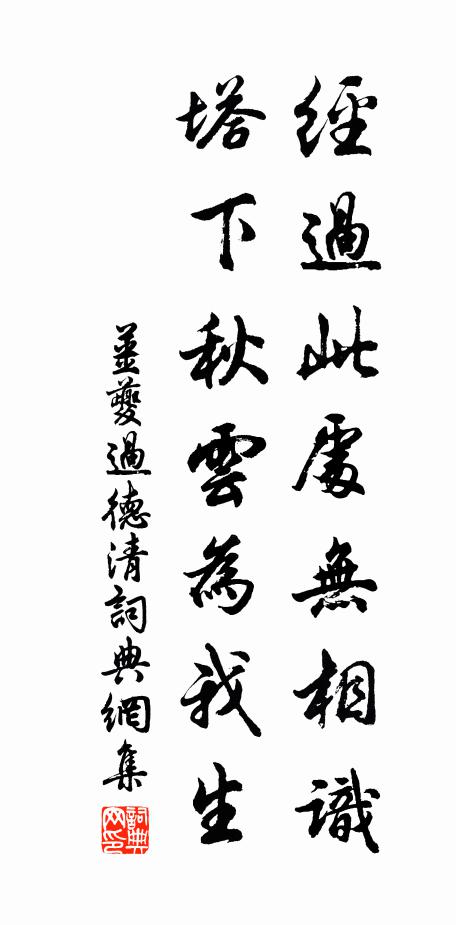 經過此處無相識
塔下秋雲為我生
姜夔過德清詞典網集
詞典網印